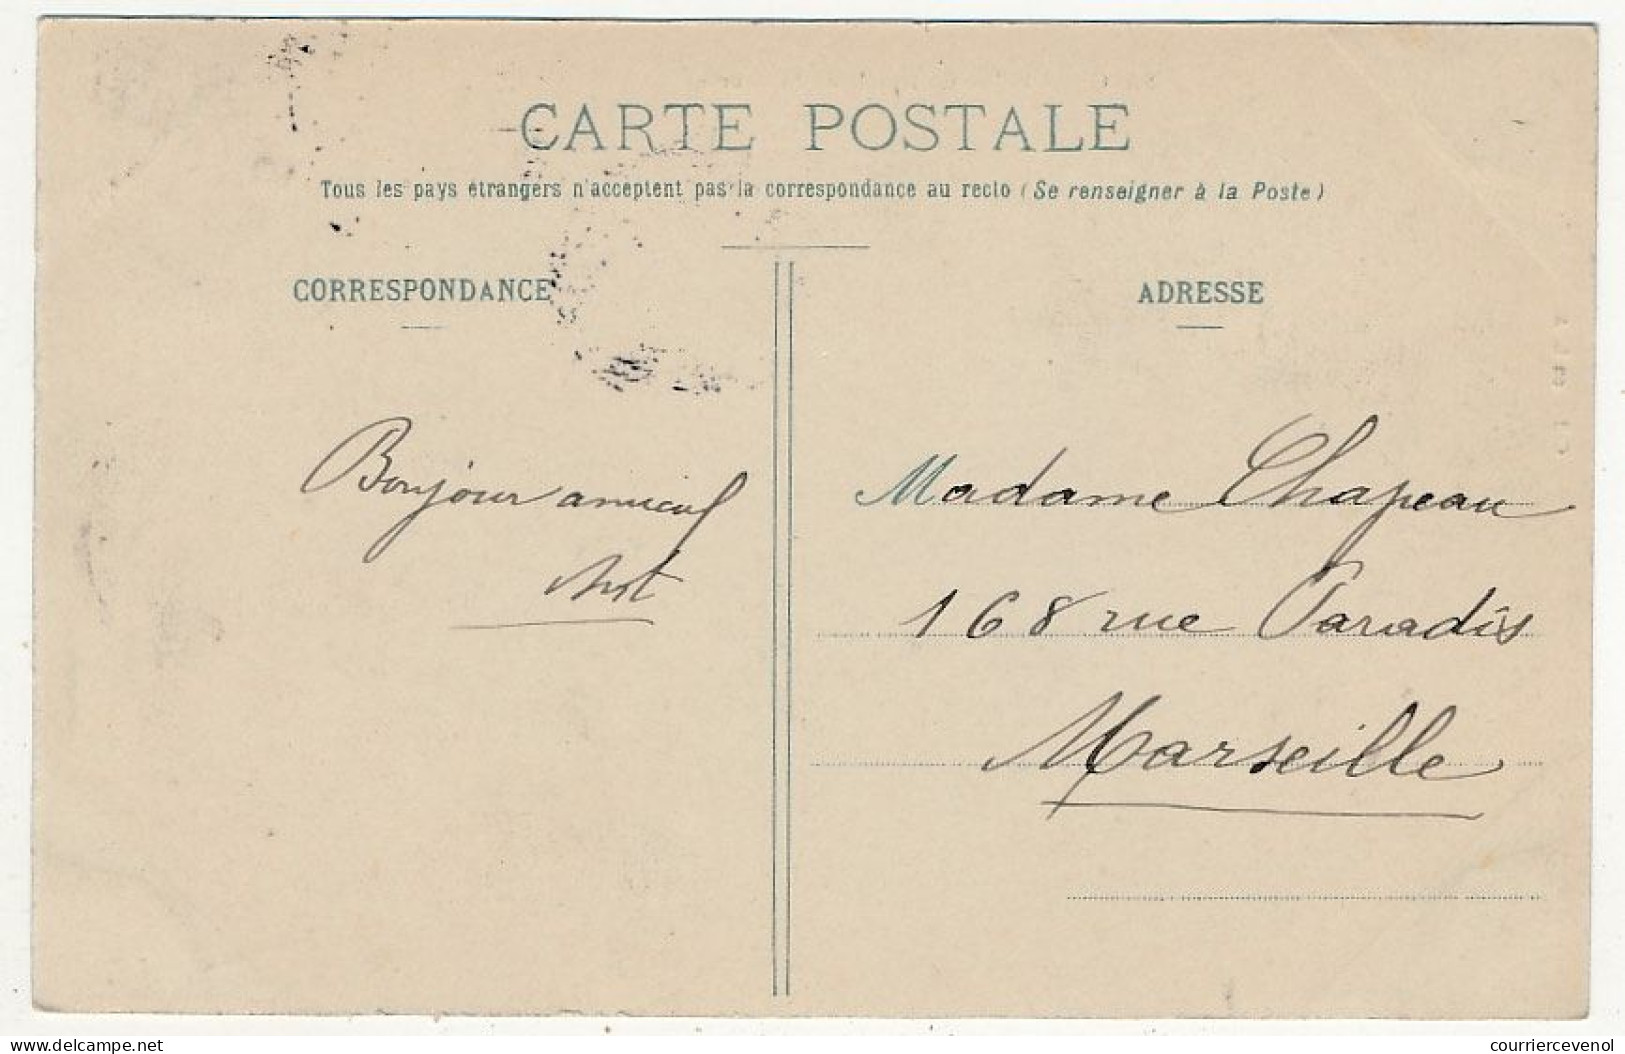 CARTE POSTALE
Tous les pays étrangers n'acceptent pas la correspondance au recto (Se renseigner à la Poste)
CORRESPONDANCE
ADRESSE
Bonjour amical
Madame Chapeau
168 rue Paradis
Marseille
www.delcampe.net
courriercevenol